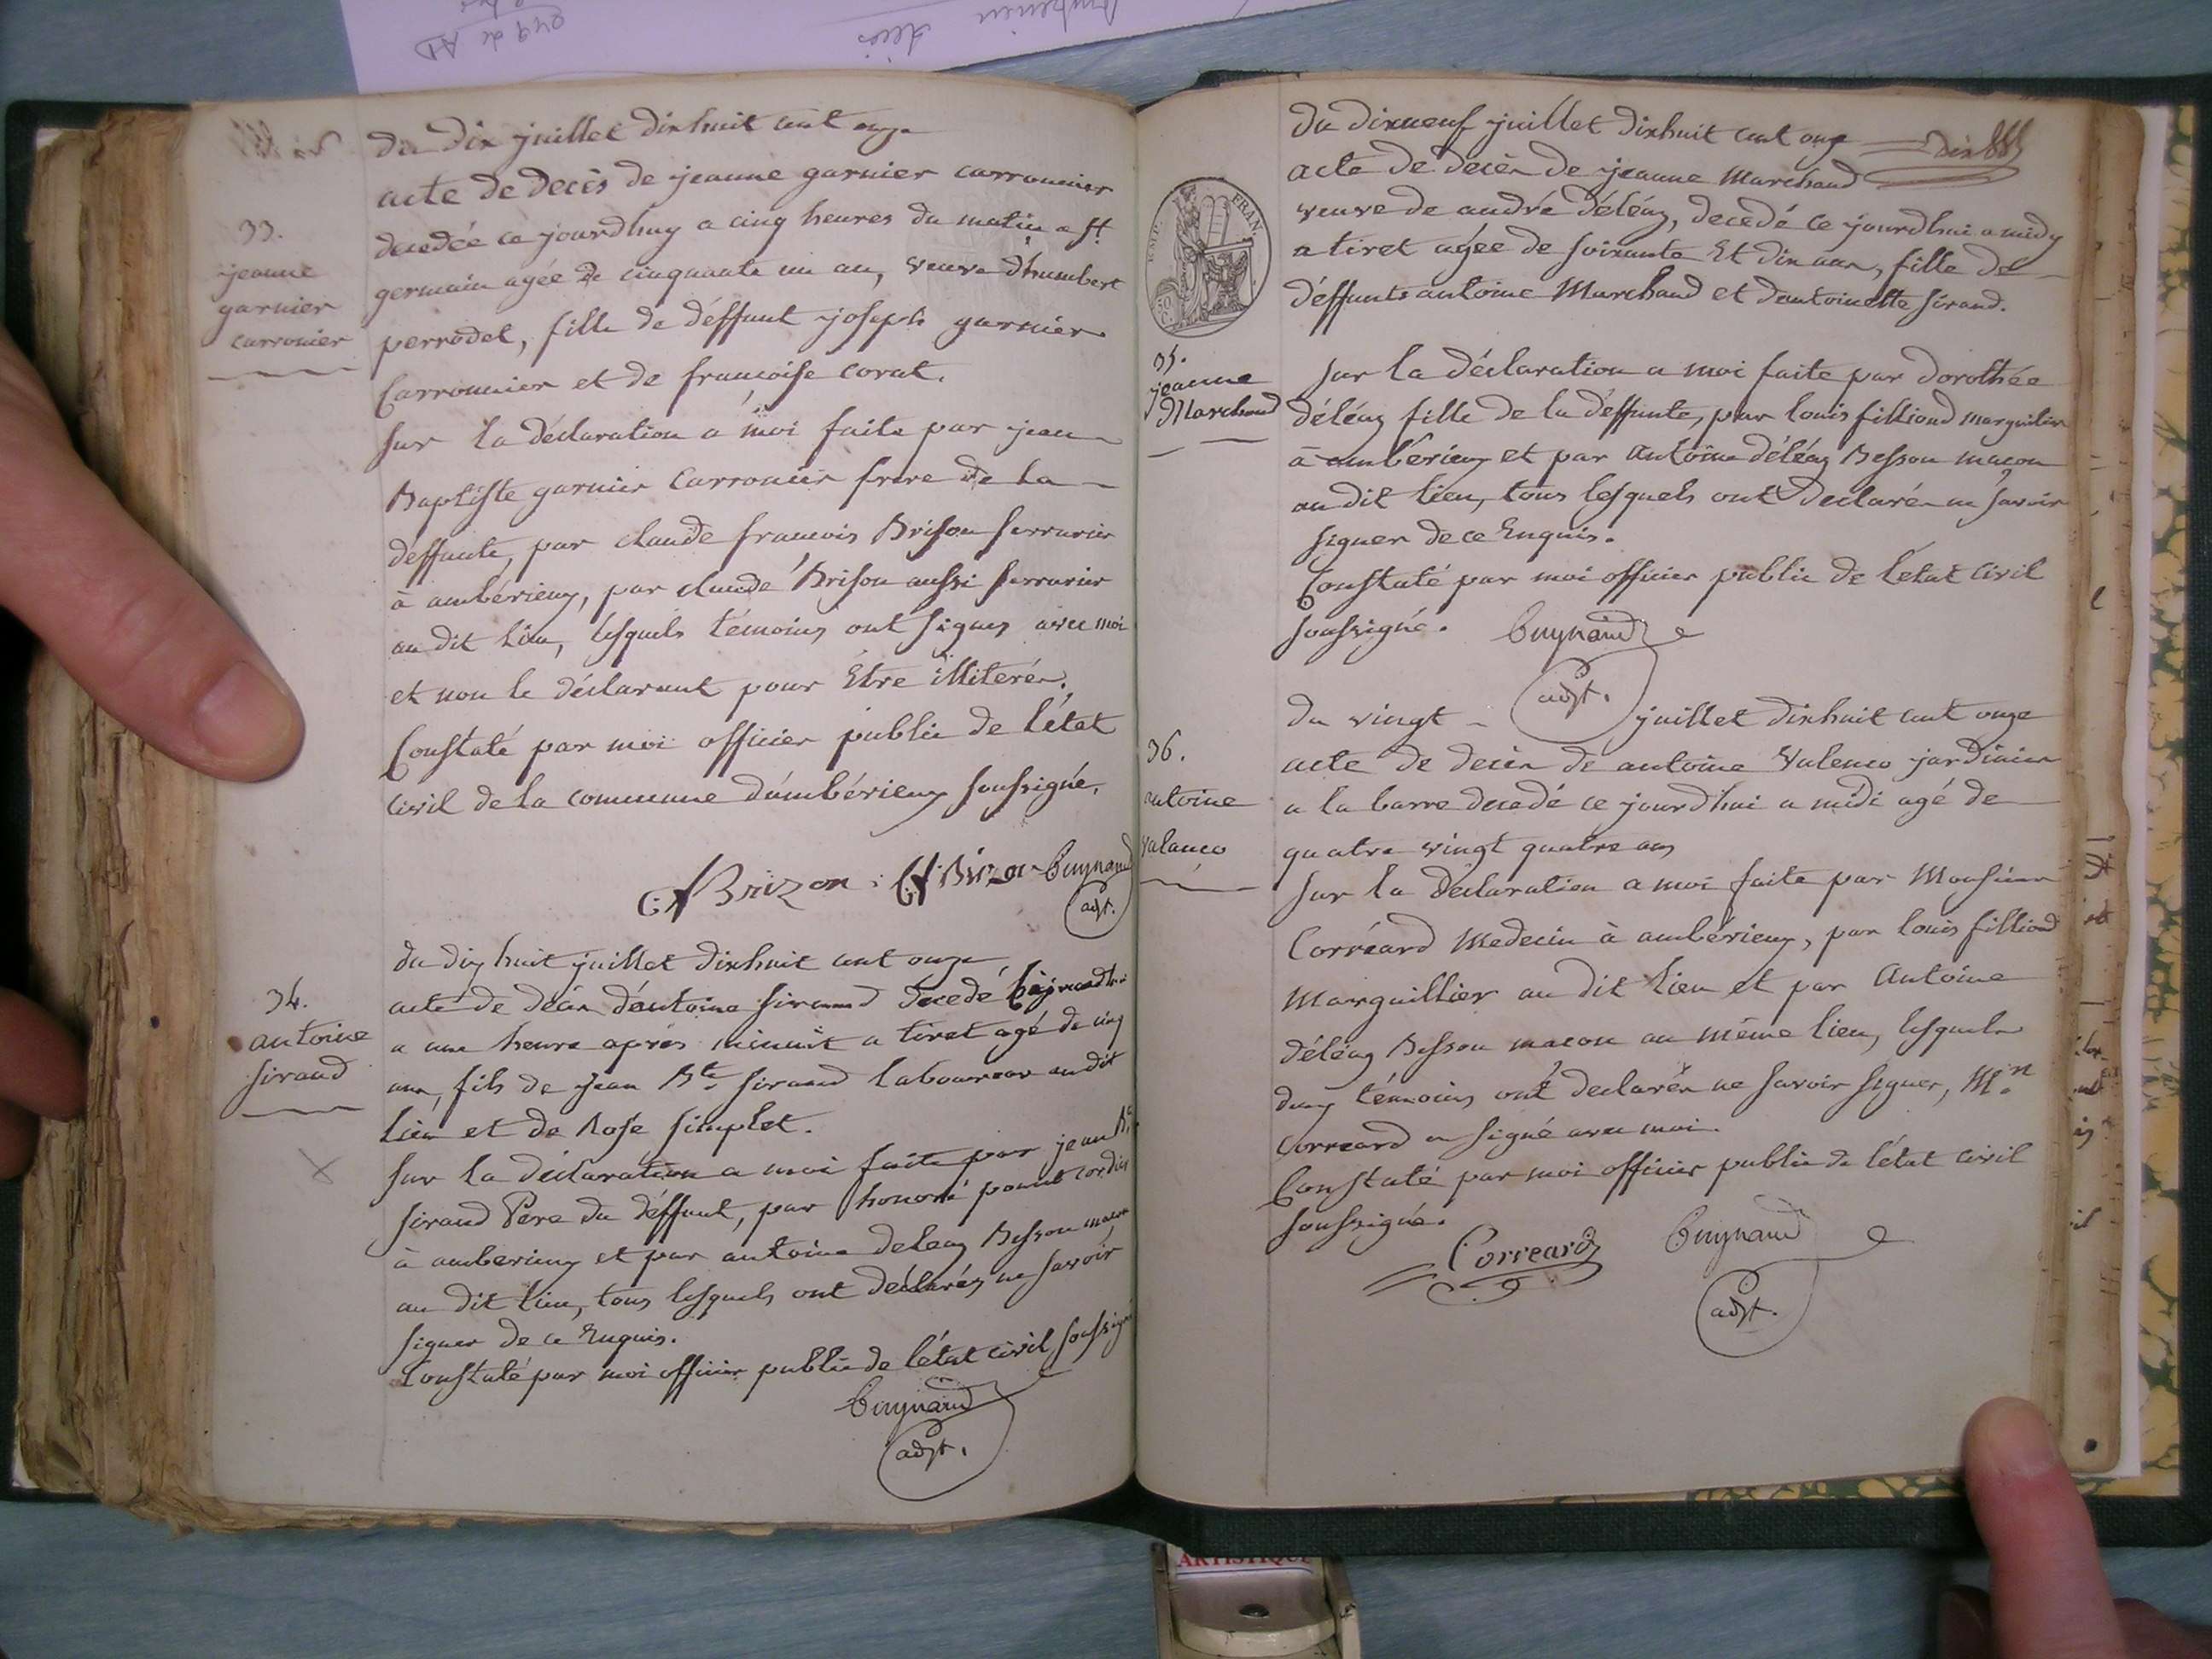 du dix juillet dixhuit cent onze
acte de decès de jeanne garnier carronnier
decedée ce jourdhuy a cinq heures du matin a St
germain agée de cinquante un an, veuve d'humbert
perrodet, fille de déffunt joseph garnier
Carronnier et de francoise corat.
sur la déclaration a moi faite par jean
Baptiste garnier Carronier frere de la
deffunte, par claude francois Brison serrurier
à ambérieuy, par claude Brison aussi serrurier
au dit lieu, lesquels témoins ont signés avec moi
et non le déclarant pour Etre illiterés.
Constaté par moi officier public de l'état
civil de la commune d'ambérieuy soussigné.
33.
jeanne
garnier
carronier
Brizon Guynand
adjt.
34.
antoine
sirand
du dix huit juillet dixhuit cent onze
acte de décès d'antoine sirand décedé
a une heure après minuit a tiret agé de cinq
ans, fils de jean Bte sirand laboureur au dit
lieu et de Rose simplet.
sur la déclaration a moi faite par jean Bte
sirand Pere du déffunt, par honoré
à amberieuy et par antoine deleaz Besson maçon
au dit lieu, tous lesquels ont déclarés ne savoir
signer de ce Enquis.
Constaté par moi officier public de l'état civil soussigné
Guynand
adjt.
du dixneuf juillet dixhuit cent onze
dix
acte de decès de jeanne Marchand
veuve de andré déléaz, decedé ce jourdhui a midy
a tiret agée de soixante Et dix ans, fille de
déffunts antoine Marchand et d'antoinette sirand.
EMP. FRAN.
50 C.
35.
jeanne
Marchand
sur la déclaration a moi faite par dorothée
déléaz fille de la déffunte, par louis filliond marguillier
à ambérieuy et par antoine déléaz Besson maçon
au dit lieu, tous lesquels ont declarés ne savoir
signer de ce Enquis.
Constaté par moi officier public de l'état civil
soussigné. Guynand
adjt.
du vingt juillet dixhuit cent onze
36.
antoine
valenco
acte de decès de antoine Valenco jardinier
a la barre decedé ce jourd'hui a midi agé de
quatre vingt quatre ans
sur la déclaration a moi faite par Monsieur
Corréard Medecin à ambérieuy, par louis filliond
Marguillier au dit lieu et par Antoine
déléaz Besson macon au même lieu, lesquels
deux témoins ont declarés ne savoir signer, Mr
Correard a signé avec moi.
Constaté par moi officier public de l'état civil
soussigné.
Correard Guynand
adjt.
ARTISTIQUE